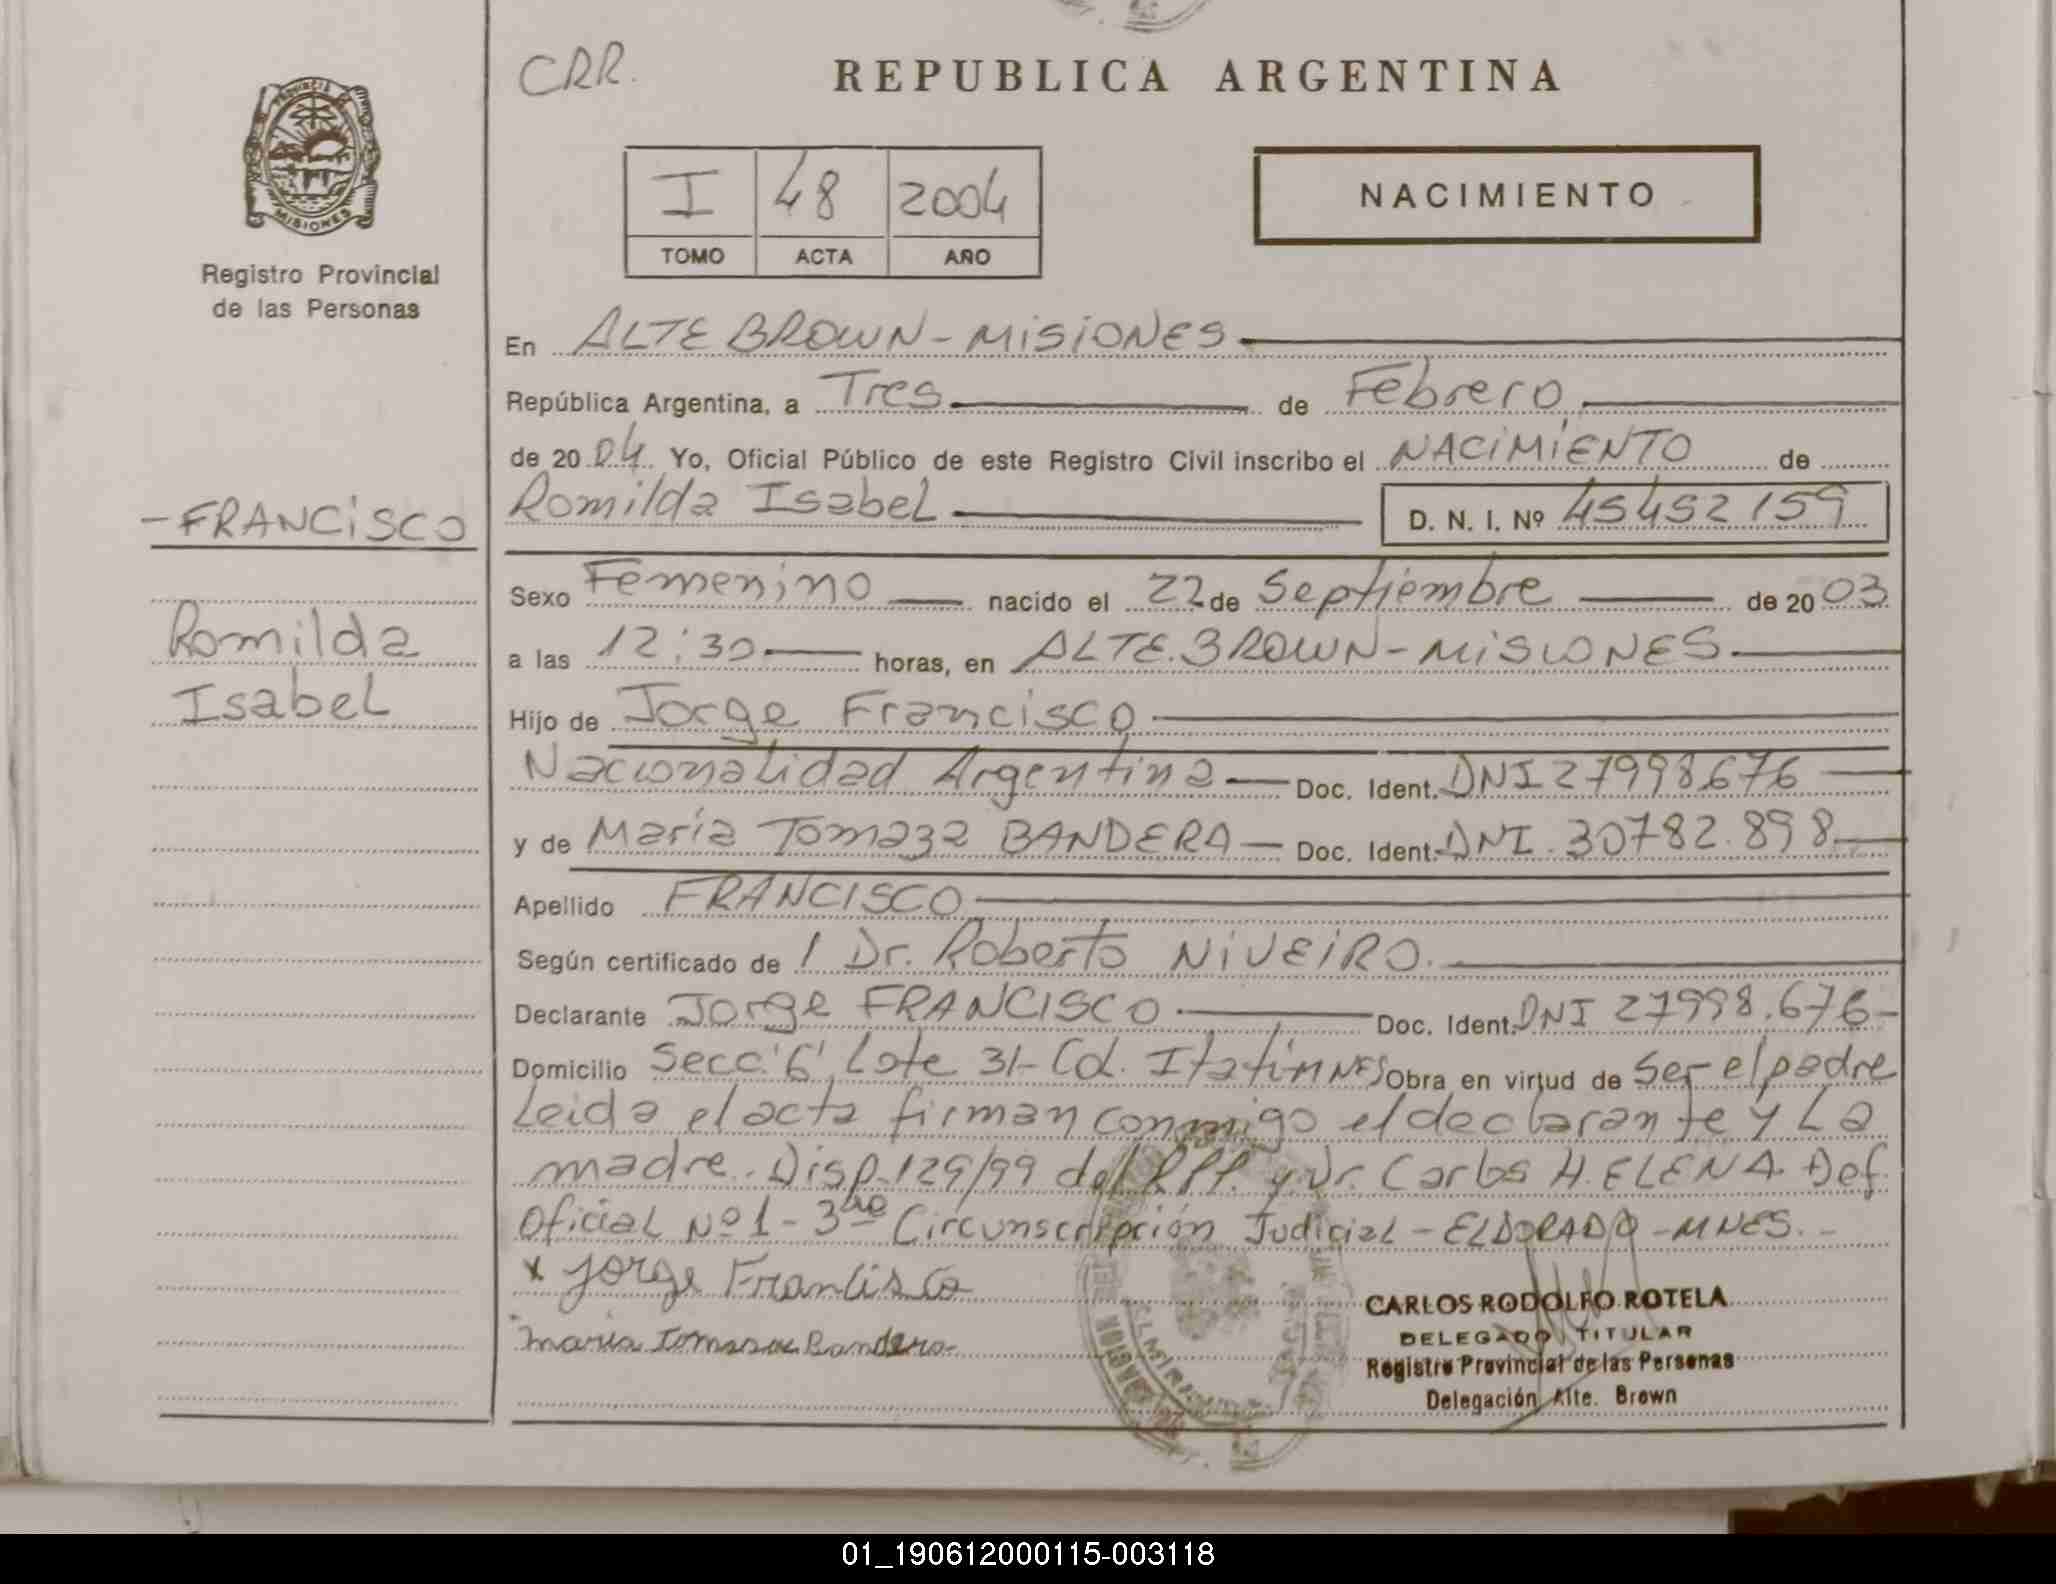 CRR.
REPUBLICA ARGENTINA
PROVINCIA DE
MISIONES
Registro Provincial
de las Personas
I 48 2004
TOMO ACTA AÑO
NACIMIENTO
En ALTE BROWN - MISIONES
República Argentina, a Tres de Febrero
de 20 04 Yo, Oficial Público de este Registro Civil inscribo el NACIMIENTO de
Romilda Isabel D. N. I. Nº 45452159
- FRANCISCO
Romilda
Isabel
Sexo Femenino nacido el 22 de Septiembre de 20 03
a las 12:30 horas, en ALTE. BROWN - MISIONES
Hijo de Jorge Francisco
Nacionalidad Argentina Doc. Ident. DNI 27998676
y de María Tomaza BANDERA Doc. Ident. DNI. 30782.898
Apellido FRANCISCO
Según certificado de / Dr. Roberto NIVEIRO.
Declarante Jorge FRANCISCO Doc. Ident. DNI 27998.676
Domicilio Secc. '6' Lote 31- Col. Itatin MNES Obra en virtud de Ser el padre
Leida el acta firman conmigo el declarante y La
madre. Disp. 129/99 del RPP. y Dr. Carlos H. ELENA Def.
Oficial Nº 1 - 3ra Circunscripción Judicial - ELDORADO - MNES. -
x Jorge Francisco
Maria Tomasa Bandera
CARLOS RODOLFO ROTELA
DELEGADO TITULAR
Registro Provincial de las Personas
Delegación Alte. Brown
01_190612000115-003118